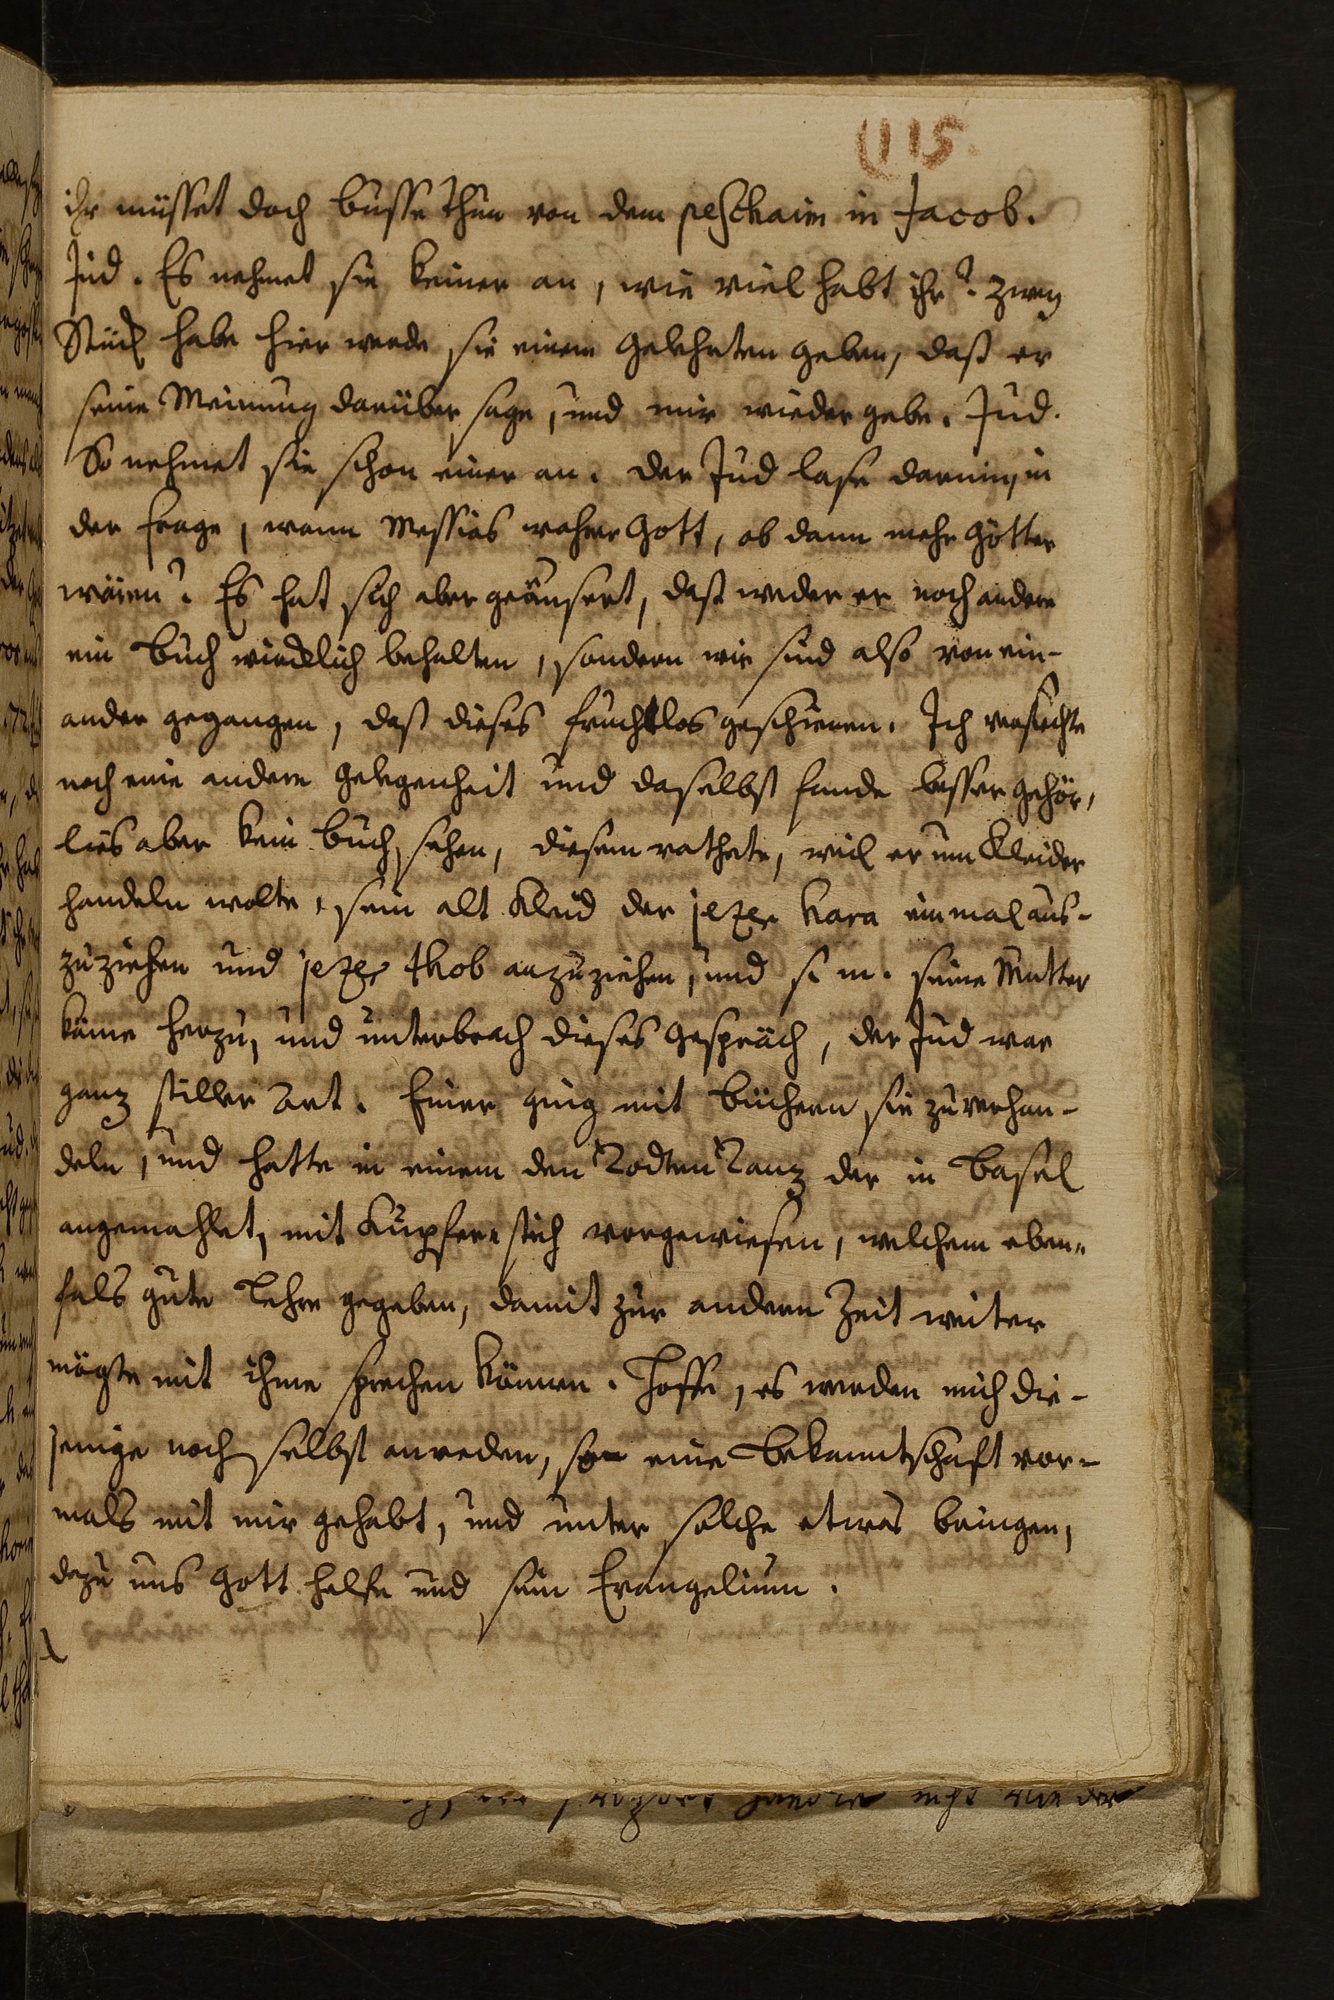 (115.
ihr müsset doch busse thun von dem peschaim in Jacob.
Jud. Es nehmet sie keiner an, wie viel habt ihr? zwey
Stück habe hier werde sie einem gelehrten geben, daß er
seine Meinung darüber sage, und mir wieder gebe. Jud.
So nehmet sie schon einer an. der Jud lase darinn, in
der frage, wann Messias wahrer Gott, ob dann mehr Götter
wären? Es hat sich aber geäusert, daß weder er noch andere
ein buch wircklich behalten, sondern wir sind also von ein-
ander gegangen, daß dieses fruchtlos geschienen. Ich versuchte
noch eine andere gelegenheit und daselbst funde besser gehör,
lies aber kein buch sehen, diesem rathete, weil er um Kleider
handeln wolte, sein alt Kleid der jezer hara einmal aus-
zuziehen und jezer thob anzuziehen, und s. m. seine Mutter
käme herzu, und unterbrach dieses gespräch, der Jud war
ganz stiller Art. Einer ging mit büchern sie zu verhan-
deln, und hatte in einem den Todten Tanz der in Basel
angemahlet, mit Kupfer-stich vorgewiesen, welchem eben-
fals gute Lehre gegeben, damit zur andern Zeit weiter
mögte mit ihme sprechen können. Hoffe, es werden mich die-
jenige noch selbst anreden, so eine Bekanntschaft vor-
mals mit mir gehabt, und unter solche etwas bringen,
dazu uns Gott helfe und sein Evangelium.